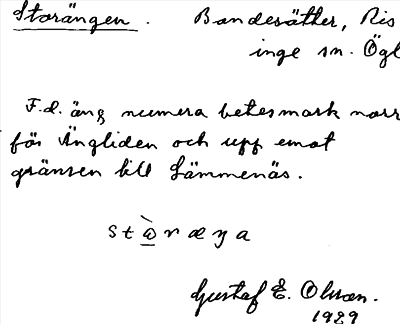 Storängen. Bandesätter, Ris
inge sn. Ögl
F.d. äng numera betesmark norr
för Ängliden och upp emot
gränsen till Sämmenäs.
stɷ̀ræŋa
Gustaf E. Olsson.
1929